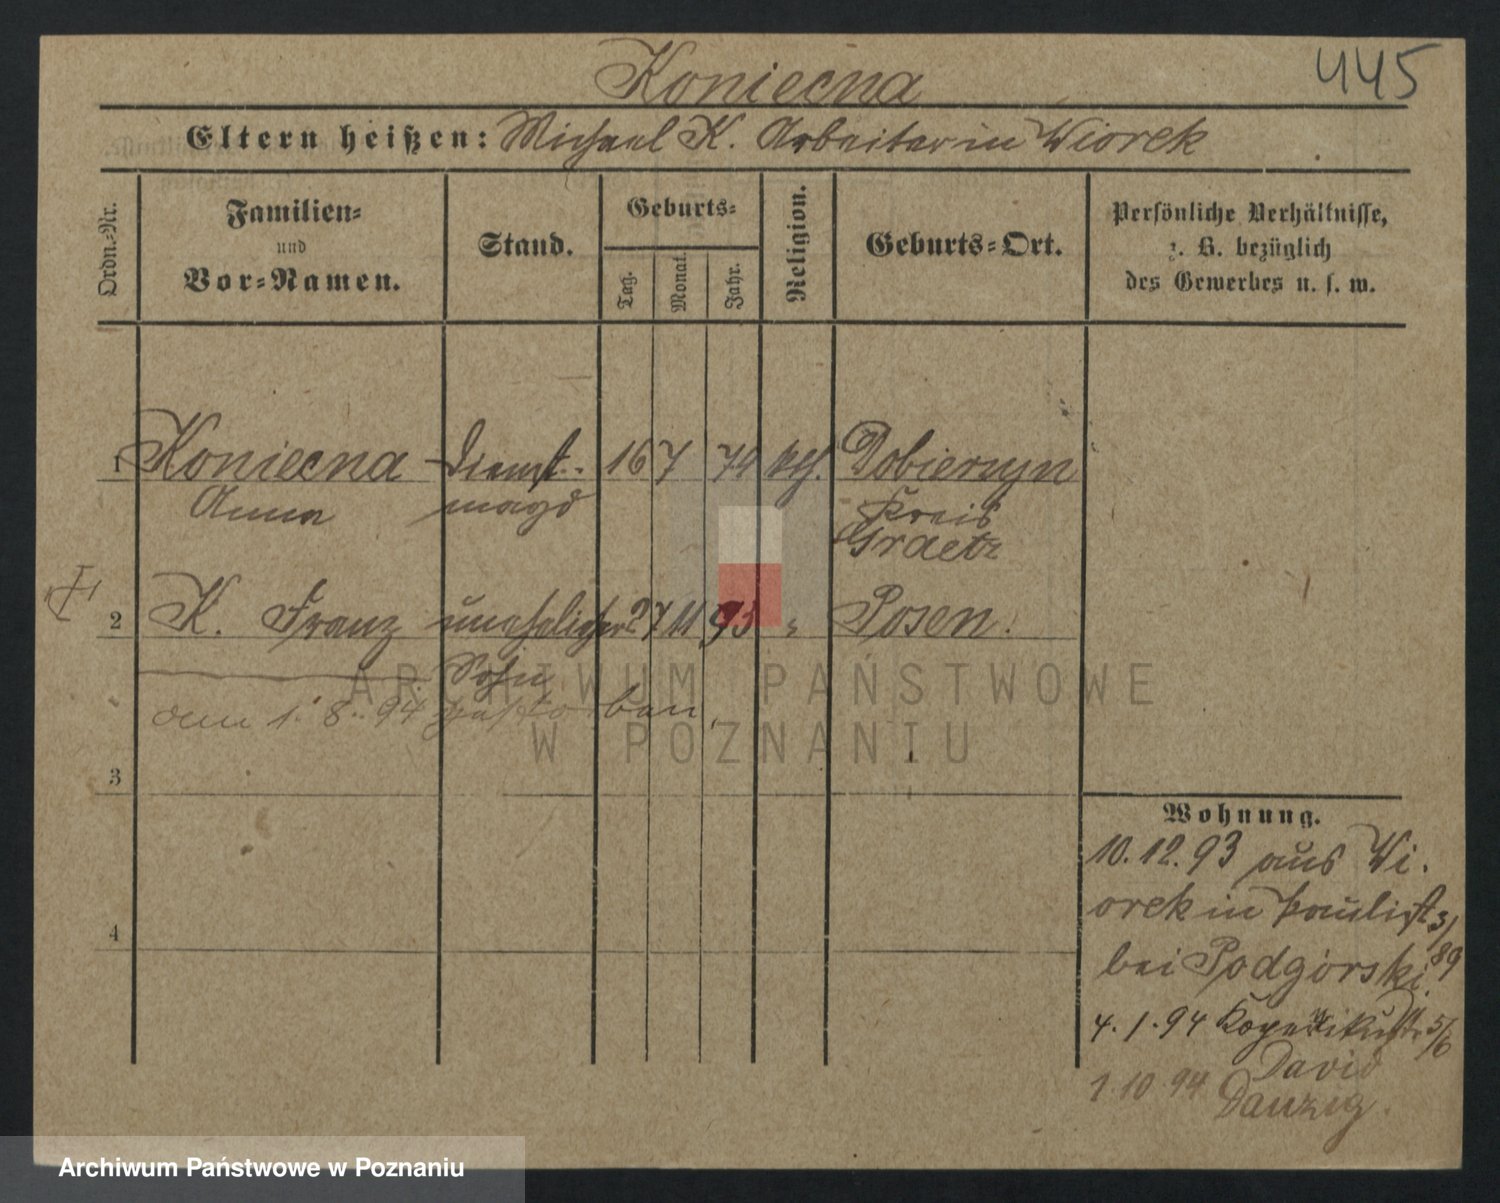 Koniecna
445
Eltern heißen: Michael K. Arbeiter in Wiorek
Ordn.-Nr.
Familien-
und
Vor-Namen.
Stand.
Geburts-
Tag.
Monat.
Jahr.
Religion.
Geburts-Ort.
Persönliche Verhältnisse,
z. B. bezüglich
des Gewerbes u. s. w.
1 Koniecna Dienst- 16 7 74 kth. Dobiersyn
Anna magd Kreis
Graetz
2 K. Franz unehelicher 27 11 93 " Posen.
Sohn
am 1. 8. 94 gestorben.
3
4
Wohnung.
10.12.93 aus Wi-
orek in Paulist 3/
bei Podgórski. 89
4.1.94 5/6
David
1.10.94 Danzig.
ARCHIWUM PAŃSTWOWE
W POZNANIU
Archiwum Państwowe w Poznaniu